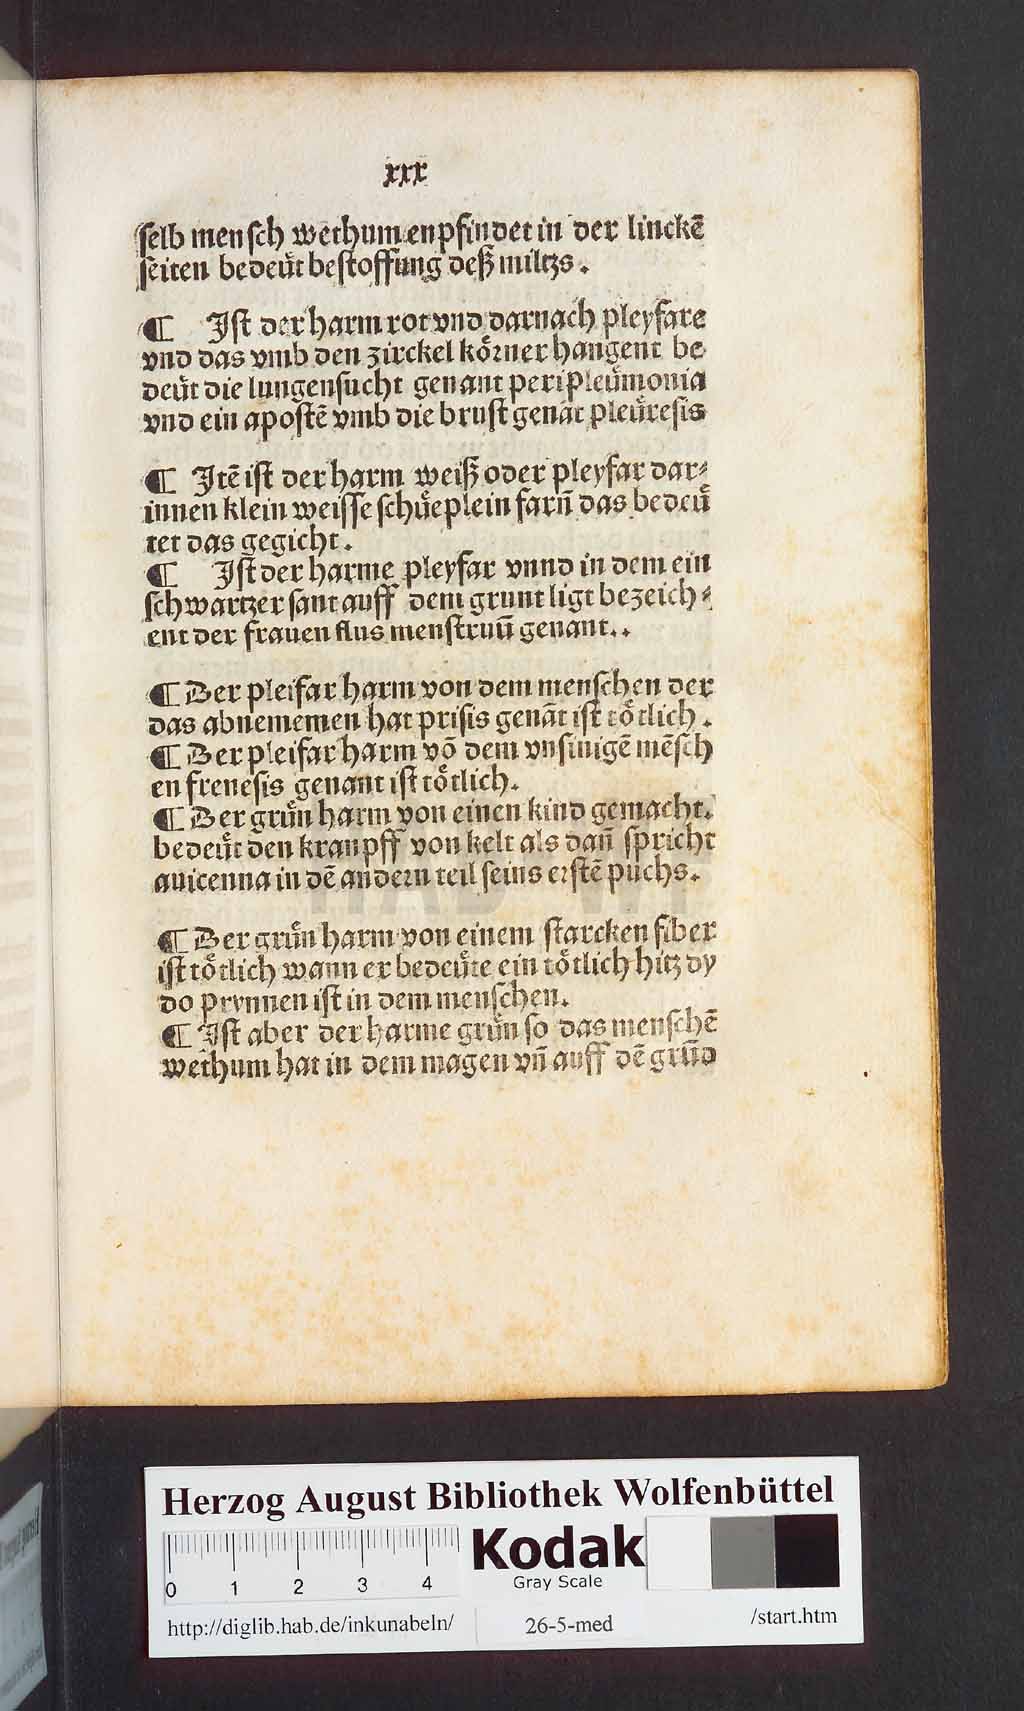 xxx
selb mensch wethum enpfindet in der linckē
seiten bedeüt bestoffung deß miltzs.
¶ Ist der harm rot vnd darnach pleyfare
vnd das vmb den zirckel körner hangent be
deüt die lungensucht genant peripleümonia
vnd ein apostē vmb die brust genāt pleüresis
¶ Itē ist der harm weiß oder pleyfar dar⸗
innen klein weisse schüeplein farn̄ das bedeü
tet das gegicht.
¶ Ist der harme pleyfar vnnd in dem ein
schwartzer sant auff dem grunt ligt bezeich⸗
ent der frauen flus menstruū genant..
¶ Der pleifar harm von dem menschen der
das abnememen hat prisis genāt ist tötlich.
¶ Der pleifar harm vō dem vnsinigē mēsch
en frenesis genant ist tötlich.
¶ Der grün harm von einen kind gemacht.
bedeüt den krampff von kelt als dan̄ spricht
auicenna in dē andern teil seins erstē puchs.
¶ Der grün harm von einem starcken fiber
ist tötlich wann er bedeüte ein tötlich hitz dy
do prynnen ist in dem menschen.
¶ Ist aber der harme grün so das menschē
wethum hat in dem magen vn̄ auff dē grūd
HAB WF
Herzog August Bibliothek Wolfenbüttel
0 1 2 3 4
Kodak
Gray Scale
http://diglib.hab.de/inkunabeln/ 26-5-med /start.htm